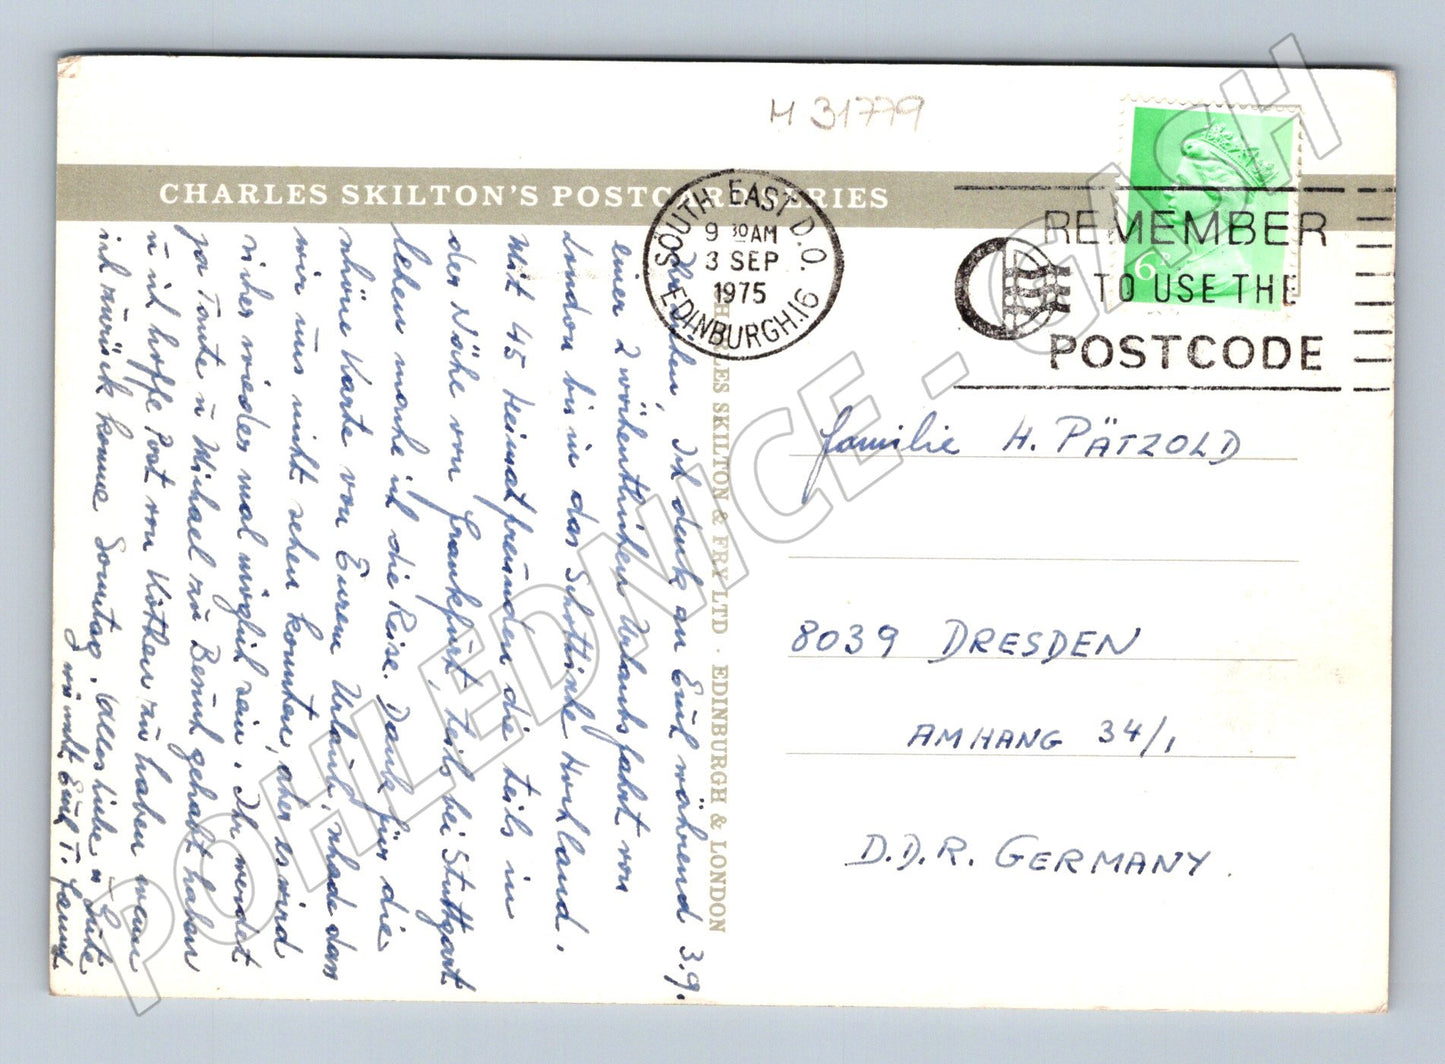 H 31779
CHARLES SKILTON'S POSTCARD SERIES
SOUTH EAST D.O.
9 30 AM
3 SEP
1975
EDINBURGH.16
REMEMBER
TO USE THE
POSTCODE
6P
CHARLES SKILTON & FRY LTD · EDINBURGH & LONDON
3.9.
Ich denke an Euch während
einer 2 wöchentlichen Urlaubsfahrt von
London bis in das Schottische Hochland.
Mit 45 Heimatfreunden die teils in
der Nähe von Frankfurt, teils bei Stuttgart
leben mache ich die Reise. Dank für die
schöne Karte von Eurem Urlaub, schade dass
wir uns nicht sehen konnten, aber es wird
sicher wieder mal möglich sein. Ihr werdet
ja Tante u Michael zu Besuch gehabt haben
u ich hoffe Post von Köthen zu haben wenn
ich zurück komme Sonntag. Alles Liebe u Gute
wünscht Euch T.
Familie H. PÄTZOLD
8039 DRESDEN
AMHANG 34/1
D.D.R. GERMANY.
POHLEDNICE - GASH